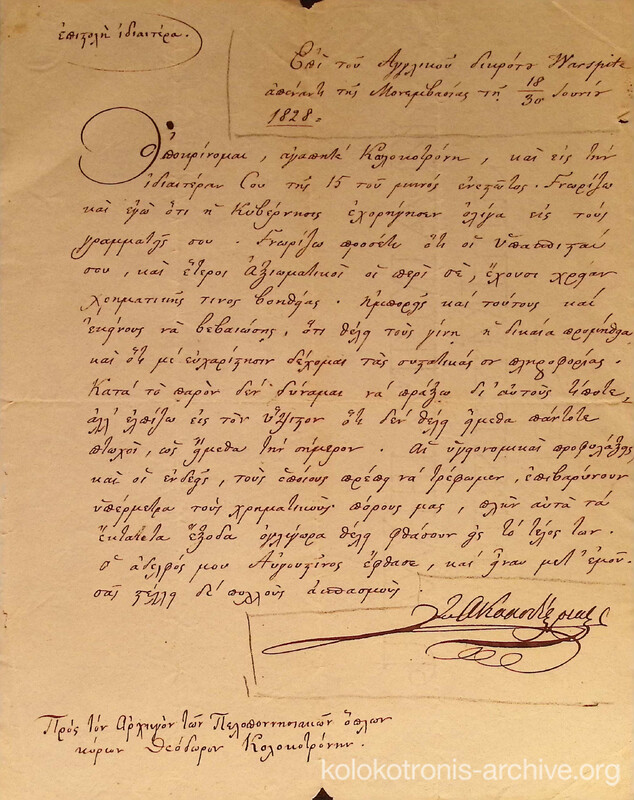 ἐπιστολὴ ἰδιαιτέρα.
Ἐπὶ τοῦ Ἀγγλικοῦ δικρότου Warspite
ἀπέναντι τῆς Μονεμβασίας τῇ 18/30 Ἰουνίου
1828.
Ἀποκρίνομαι, ἀγαπητὲ Κολοκοτρόνη, καὶ εἰς τὴν
ἰδιαιτέραν Σου τῆς 15 τοῦ μηνὸς ἐνεστῶτος. Γνωρίζω
καὶ ἐγὼ ὅτι ἡ Κυβέρνησις ἐχορήγησεν ὀλίγα εἰς τοὺς
γραμματεῖς σου. Γνωρίζω προσέτι ὅτι οἱ ὑπασπισταί
σου, καὶ ἕτεροι ἀξιωματικοὶ οἱ περὶ σὲ, ἔχουσι χρείαν
χρηματικῆς τινος βοηθείας. ἠμπορεῖς καὶ τούτους καὶ
ἐκείνους νὰ βεβαιώσῃς, ὅτι θέλει τοὺς γίνῃ ἡ δικαία προμήθεια,
καὶ ὅτι μὲ εὐχαρίστησιν δέχομαι τὰς συστατικάς σου πληροφορίας.
Κατὰ τὸ παρὸν δὲν δύναμαι νὰ πράξω δι' αὐτοὺς τίποτε,
ἀλλ' ἐλπίζω εἰς τὸν ὕψιστον ὅτι δὲν θέλει ἤμεθα πάντοτε
πτωχοὶ, ὡς ἤμεθα τὴν σήμερον. Αἱ ὑγειονομικαὶ προφυλάξεις
καὶ οἱ ἐνδεεῖς, τοὺς ὁποίους πρέπει νὰ τρέφωμεν, ἐπιβαρύνουν
ὑπέρμετρα τοὺς χρηματικοὺς πόρους μας, πλὴν αὐτὰ τὰ
ἔκτακτα ἔξοδα ὀγλίγωρα θέλει φθάσουν εἰς τὸ τέλος των.
Ὁ ἀδελφός μου Αὐγουστῖνος ἔφθασε, καὶ ἦναι μετ' ἐμοῦ.
σᾶς στέλλει δὲ πολλοὺς ἀσπασμούς.
Ἰω Α Καποδίστριας
Πρὸς τὸν Ἀρχηγὸν τῶν Πελοποννησιακῶν ὅπλων
κύριον Θεόδωρον Κολοκοτρόνην.
kolokotronis-archive.org